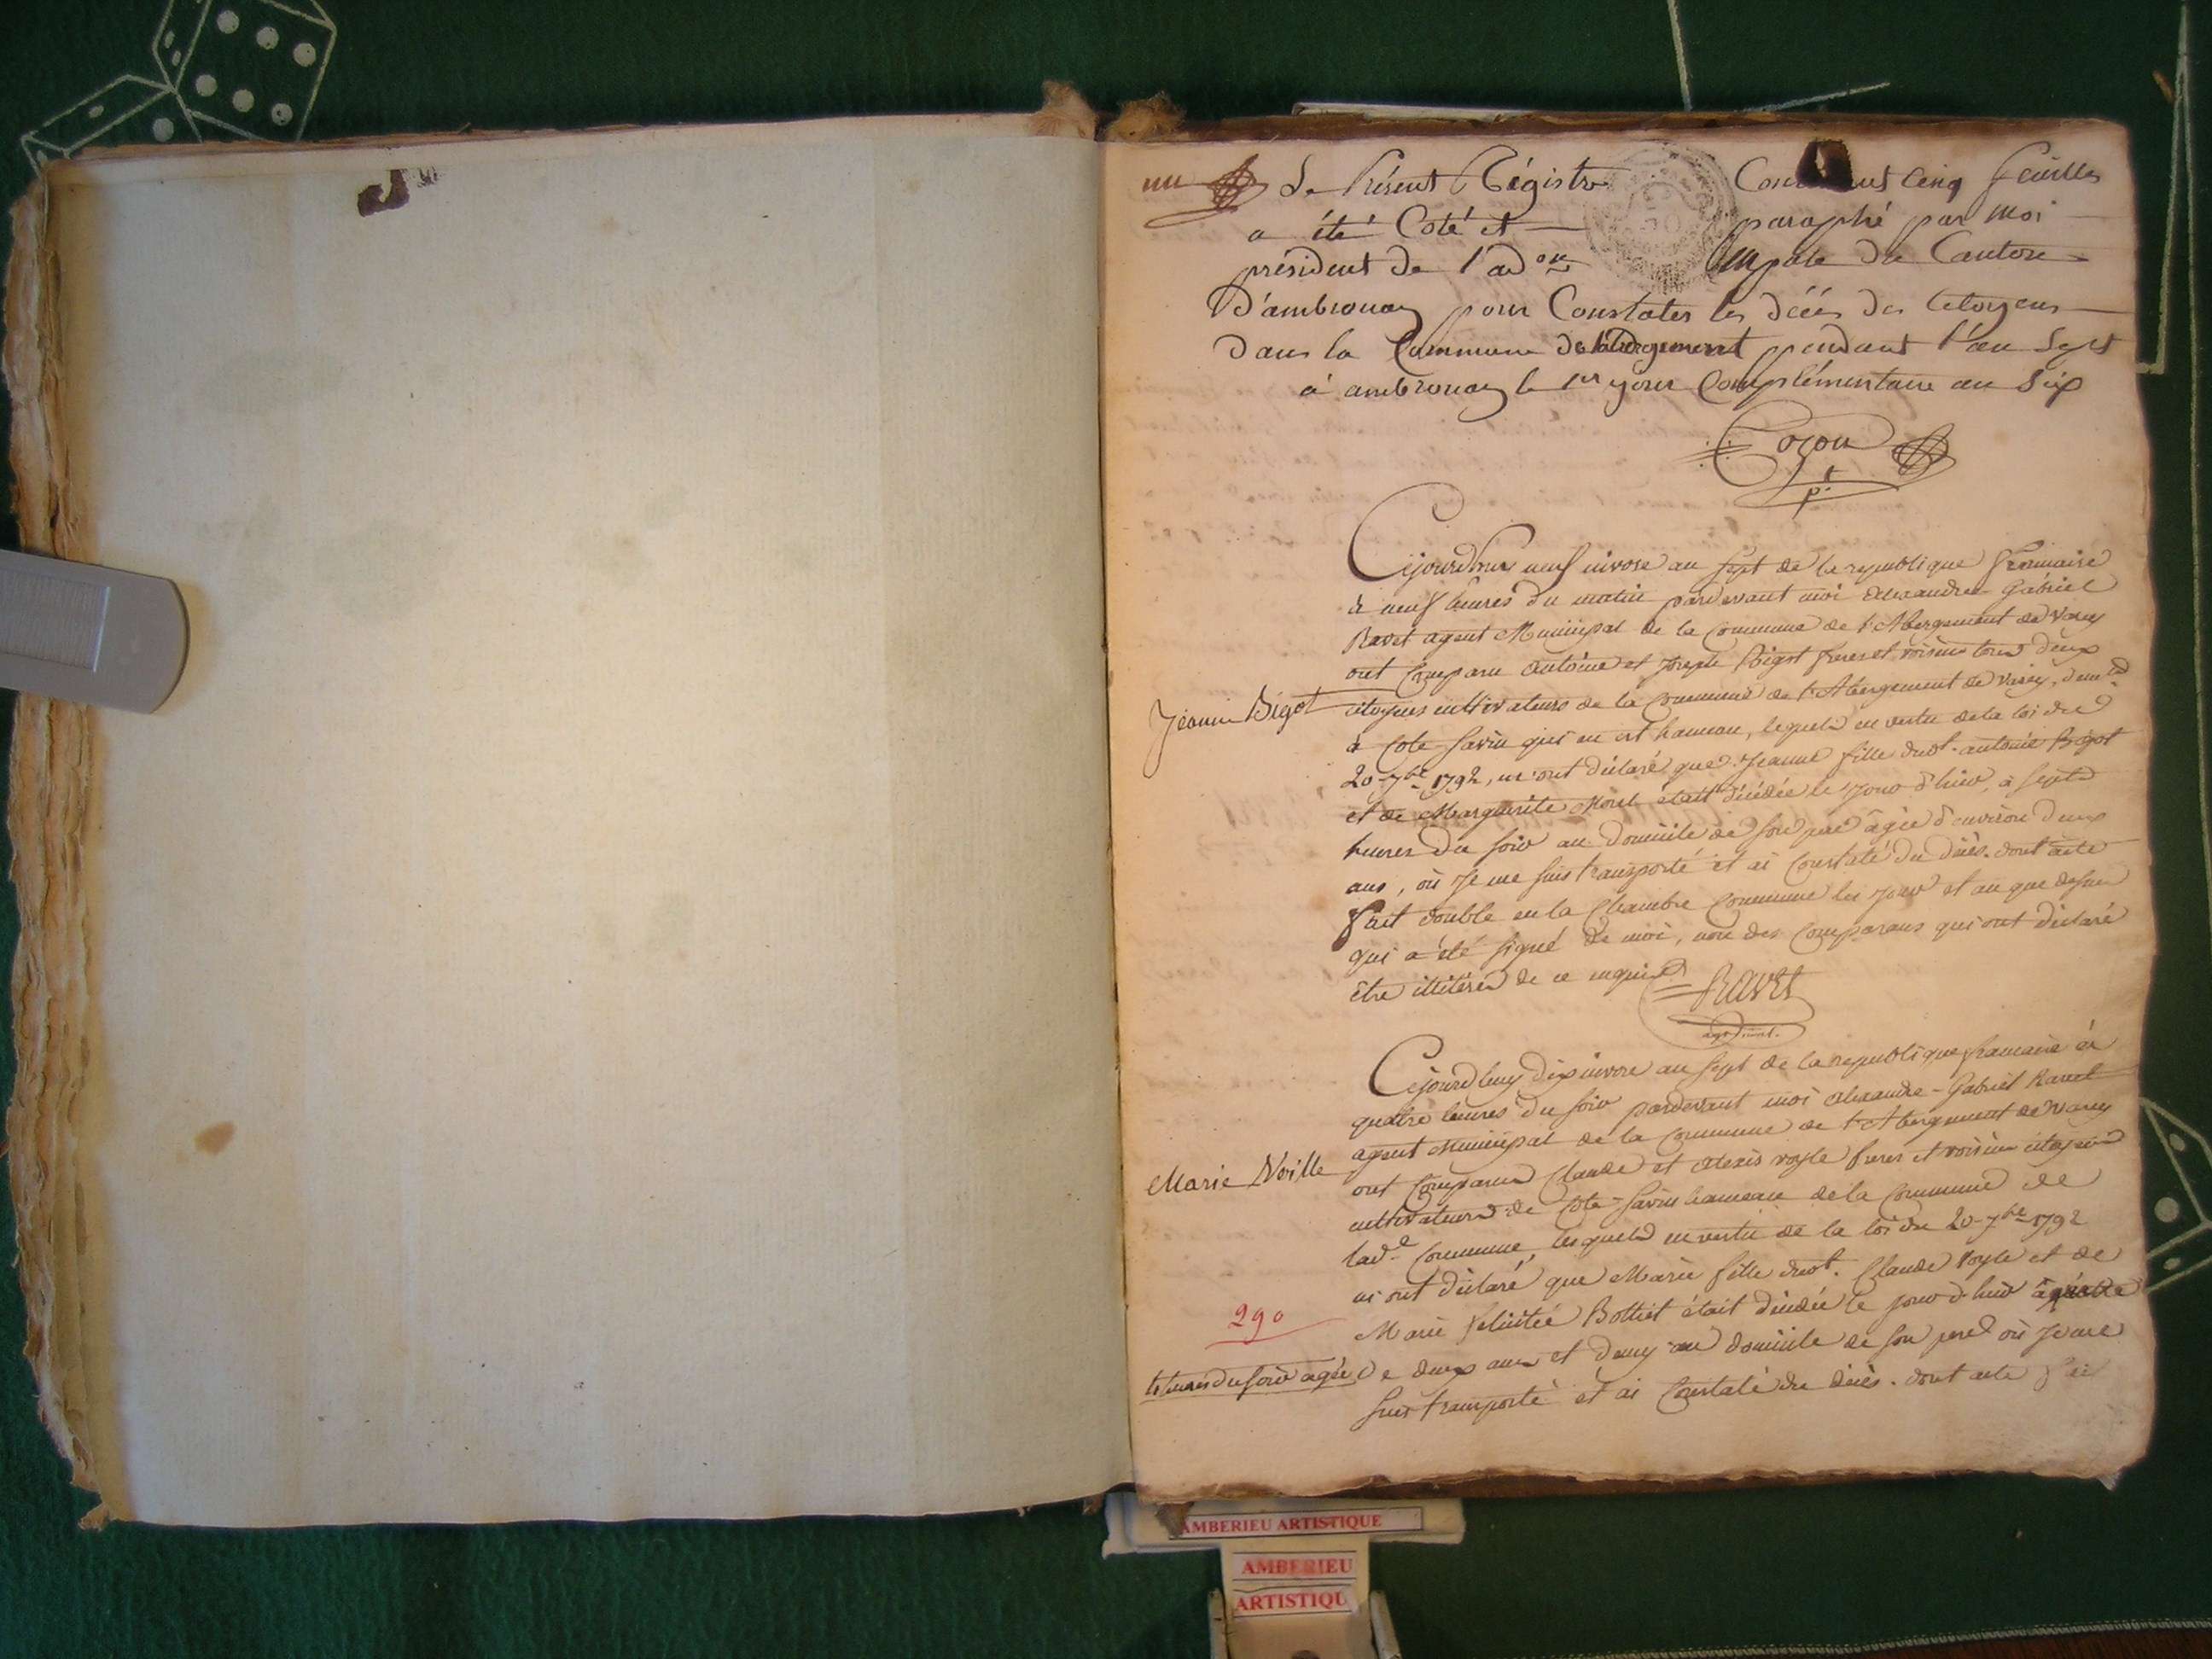 un Le Présent Régistre Contenant cinq feuilles
a été Coté et paraphé par moi
président de l'ad.on mpale du Canton
D'ambronay pour Constater les décés des Citoyens
dans la Commune de labergement pendant l'an Sept
à ambronay le 1er jour Complémentaire an Six
Cozon
p.t
Cejourdhuy neuf nivose an sept de la republique francaise
à neuf heures du matin pardevant moi Alexandre-Gabriel
Ravet agent Municipal de la Commune de l'Abergement de Varey
ont Comparu Antoine et Joseph Bigot freres et voisins tous deux
Jeanne Bigot
citoyens cultivateurs de la Commune de l'Abergement de Varey, demts
à Cote-Savin qui en est hameau, lequels en vertu de la loi du
20-7bre 1792, m'ont déclaré que Jeanne fille dudt. antoine Bigot
et de Marguerite Morel était décédée le jour d'hier, à sept
heures du soir au domicile de son pere âgée d'environ deux
ans, où Je me suis transporté et ai Constaté du décès. dont acte
fait double en la Chambre Commune les jour et an que dessus
qui a été signé de moi, non des Comparans qui ont déclaré
être illitérés de ce requis
RAVET
agt. mcal.
Cejourdhuy dix nivose an sept de la republique francaise à
quatre heures du soir pardevant moi Alexandre-Gabriel Ravet
agent Municipal de la Commune de l'Abergement de Varey
Marie Voille
ont Comparus Claude et Alexis voyle freres et voisins citoyens
cultivateurs de Cote-Savin hameau de la Commune de
lade. Commune, lesquels en vertu de la loi du 20-7bre 1792
m'ont déclaré que Marie fille dudt. Claude Voyle et de
290
Marie felicitée Bottiet était décédée le jour d'hier à quatre
heures du soir agée de deux ans et demy au domicile de son pere où Je me
suis transporté et ai Constaté du décès. dont acte fait
AMBERIEU ARTISTIQUE
AMBERIEU
ARTISTIQU